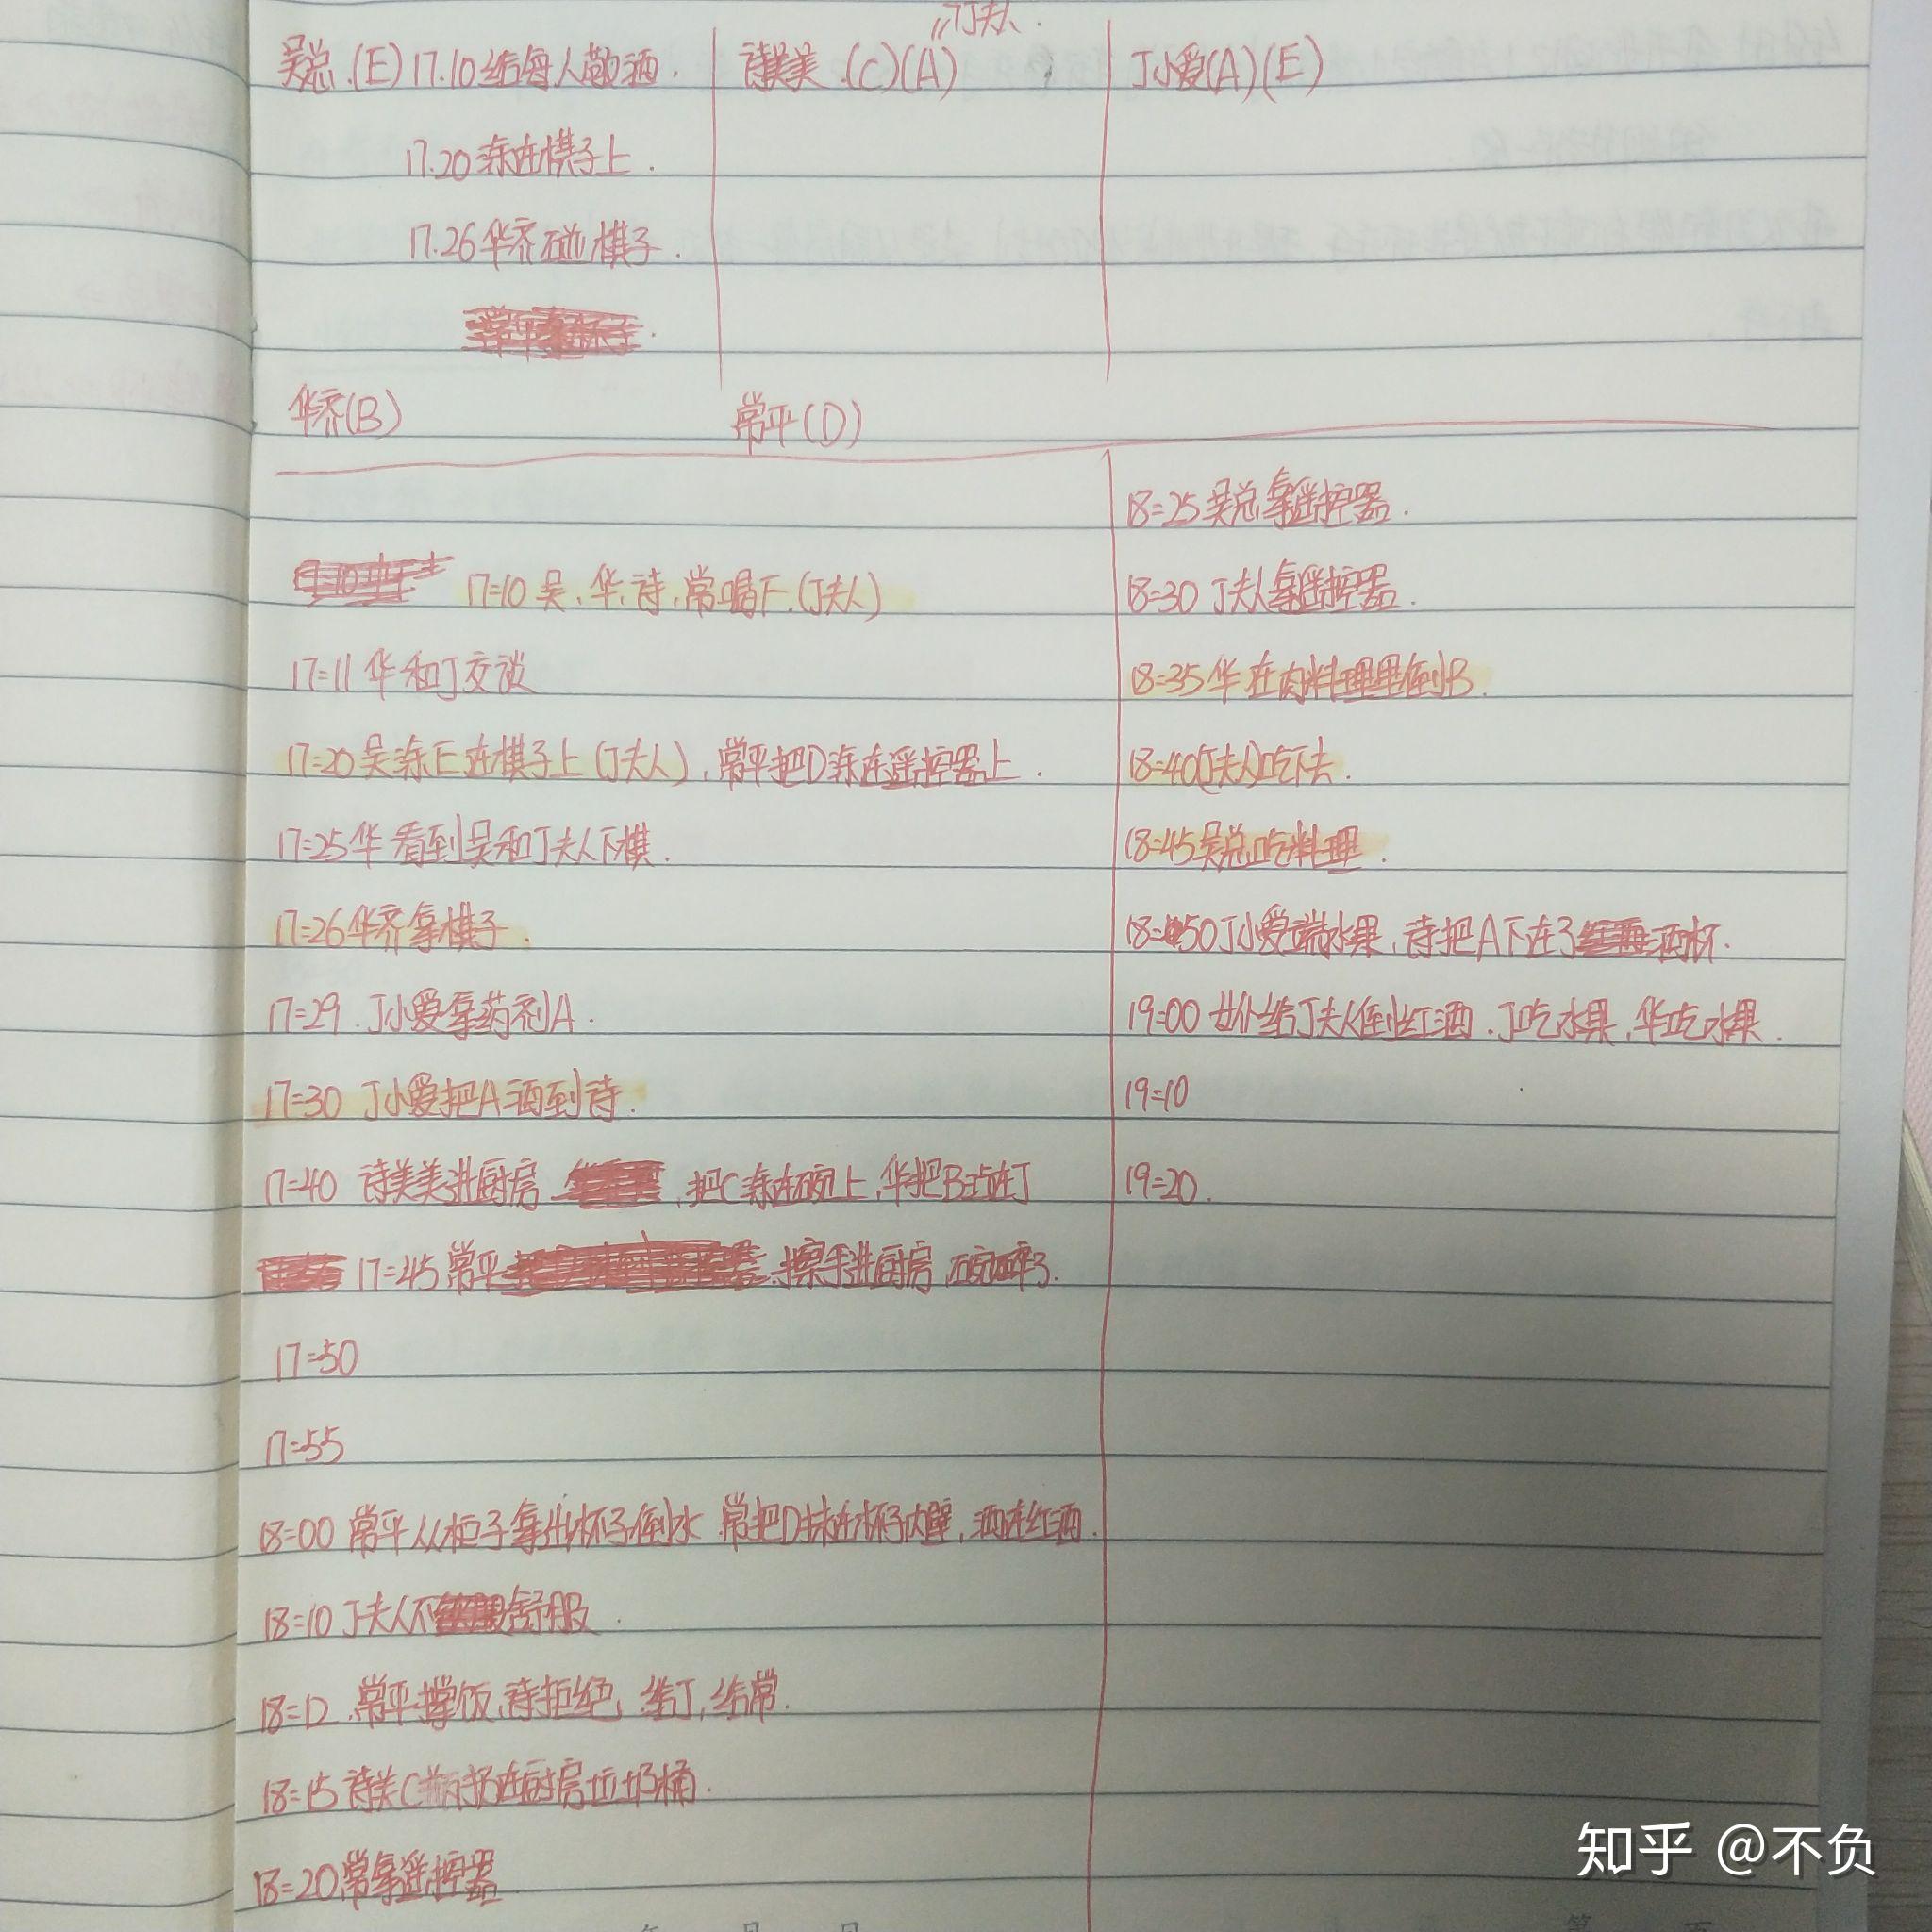 J夫人.
吴总.(E) 17.10给每人敬酒.
诗美美.(C)(A)
J小爱(A)(E)
17.20涂在棋子上.
17.26华齐碰棋子.
华齐(B)
常平(D)
17=10 吴、华、诗、常喝下.(J夫人)
17=11 华和J交谈
17=20 吴涂E在棋子上(J夫人),常平把D涂在遥控器上.
17=25华看到吴和J夫人下棋.
17=26华齐拿棋子.
17=29.J小爱拿药剂A.
17=30 J小爱把A洒到诗.
17=40 诗美美进厨房,把C涂在碗上,华把B沾在J
17=45常平.擦手进厨房,碗碎了.
17=50
17=55
18=00 常平从柜子拿出杯子倒水.常把D抹在杯子内壁,洒在红酒.
18=10 J夫人不舒服.
18=12.常平撑饭,诗拒绝,给J,给常.
18=15诗美C瓶扔在厨房垃圾桶.
18=20常拿遥控器
18=25吴总拿遥控器.
18=30 J夫人拿遥控器.
18=35华在肉料理里倒B.
18=40(J夫人)吃下去.
18=45吴总吃料理.
18=50J小爱端水果,诗把A下在了酒杯.
19=00 给J夫人倒红酒.J吃水果,华吃水果.
19=10
19=20.
知乎 @不负